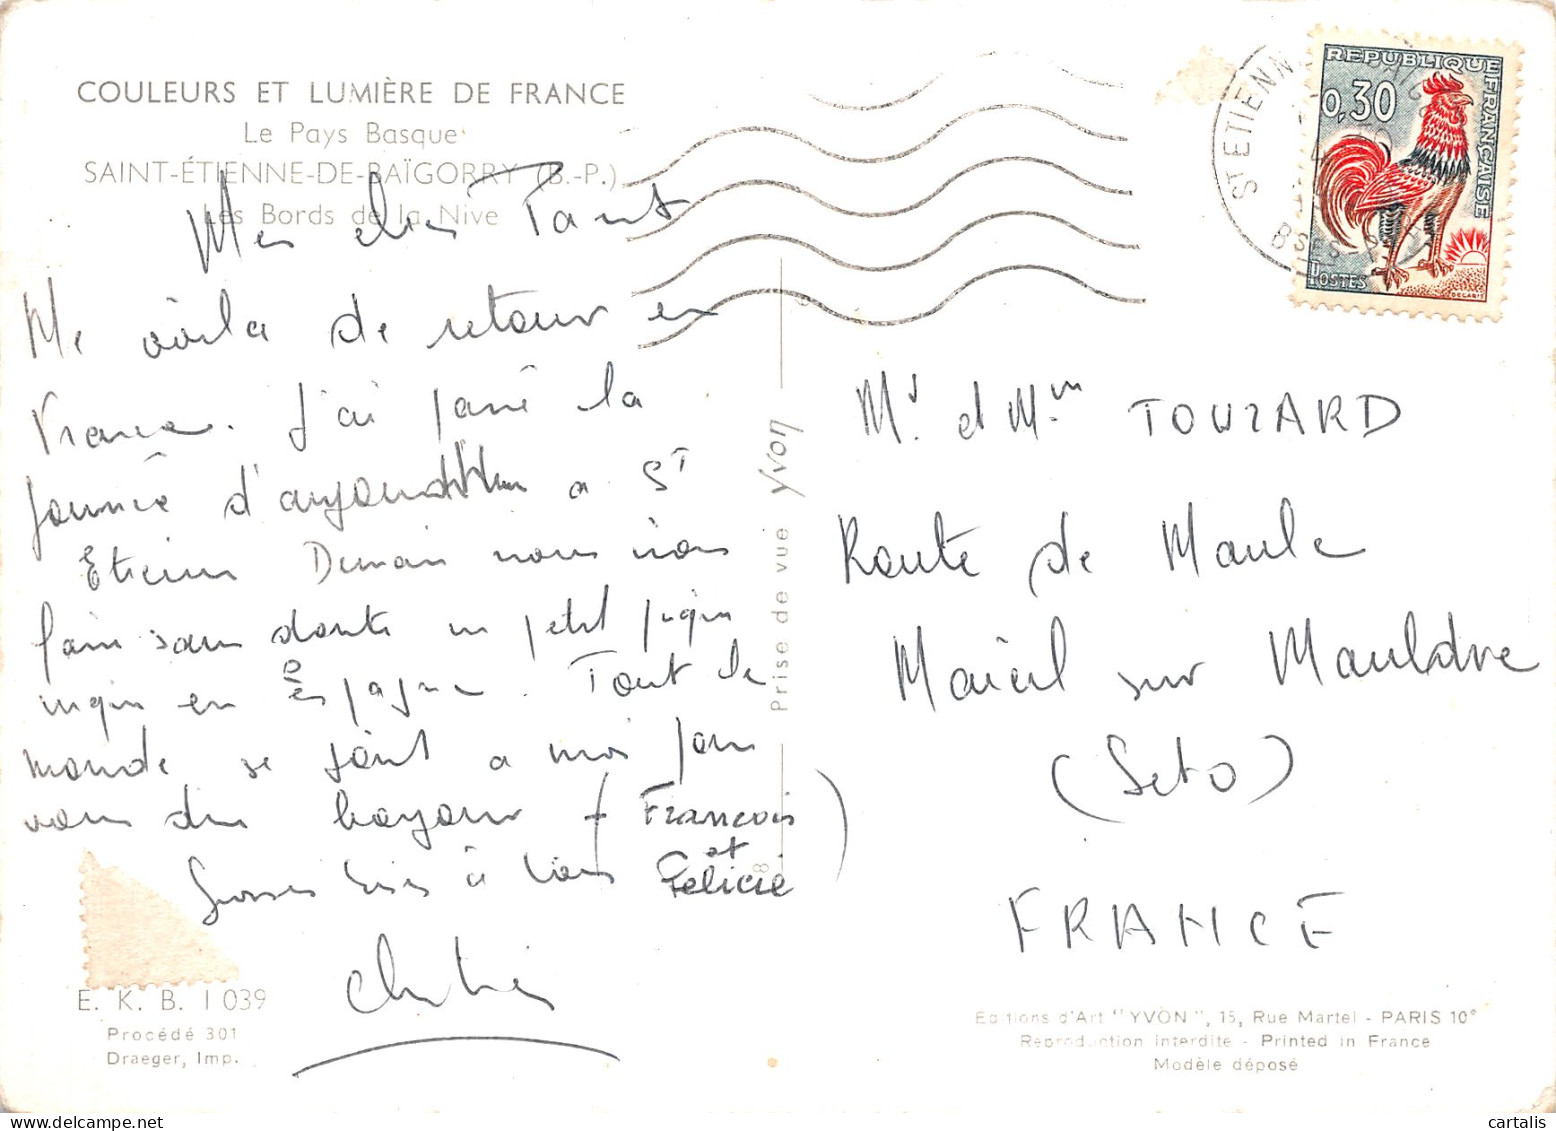 COULEURS ET LUMIÈRE DE FRANCE
Le Pays Basque
SAINT-ÉTIENNE-DE-BAÏGORRY (B.-P.)
Les Bords de la Nive
Mes chers Tant
Me voila de retour en
France. J'ai passé la
journée d'aujourd'hui a St
Etienne Demain nous irons
faire sans doute un petit piqui
niqui en Espagne. Tout le
monde se joint a moi pour
vous dire bonjour (Francois
et
Felicie)
Grosses bises à tous
E. K. B. 1039
Procédé 301
Draeger, Imp.
Prise de vue Yvon
8
ST ETIENN
BSES-P
REPUBLIQUE FRANÇAISE
0,30
POSTES
DECARIS
Mr et Mme TOUZARD
Route de Maule
Mareil sur Mauldre
(Seto)
FRANCE
Editions d'Art "YVON", 15, Rue Martel - PARIS 10e
Reproduction interdite - Printed in France
Modèle déposé
cartalis